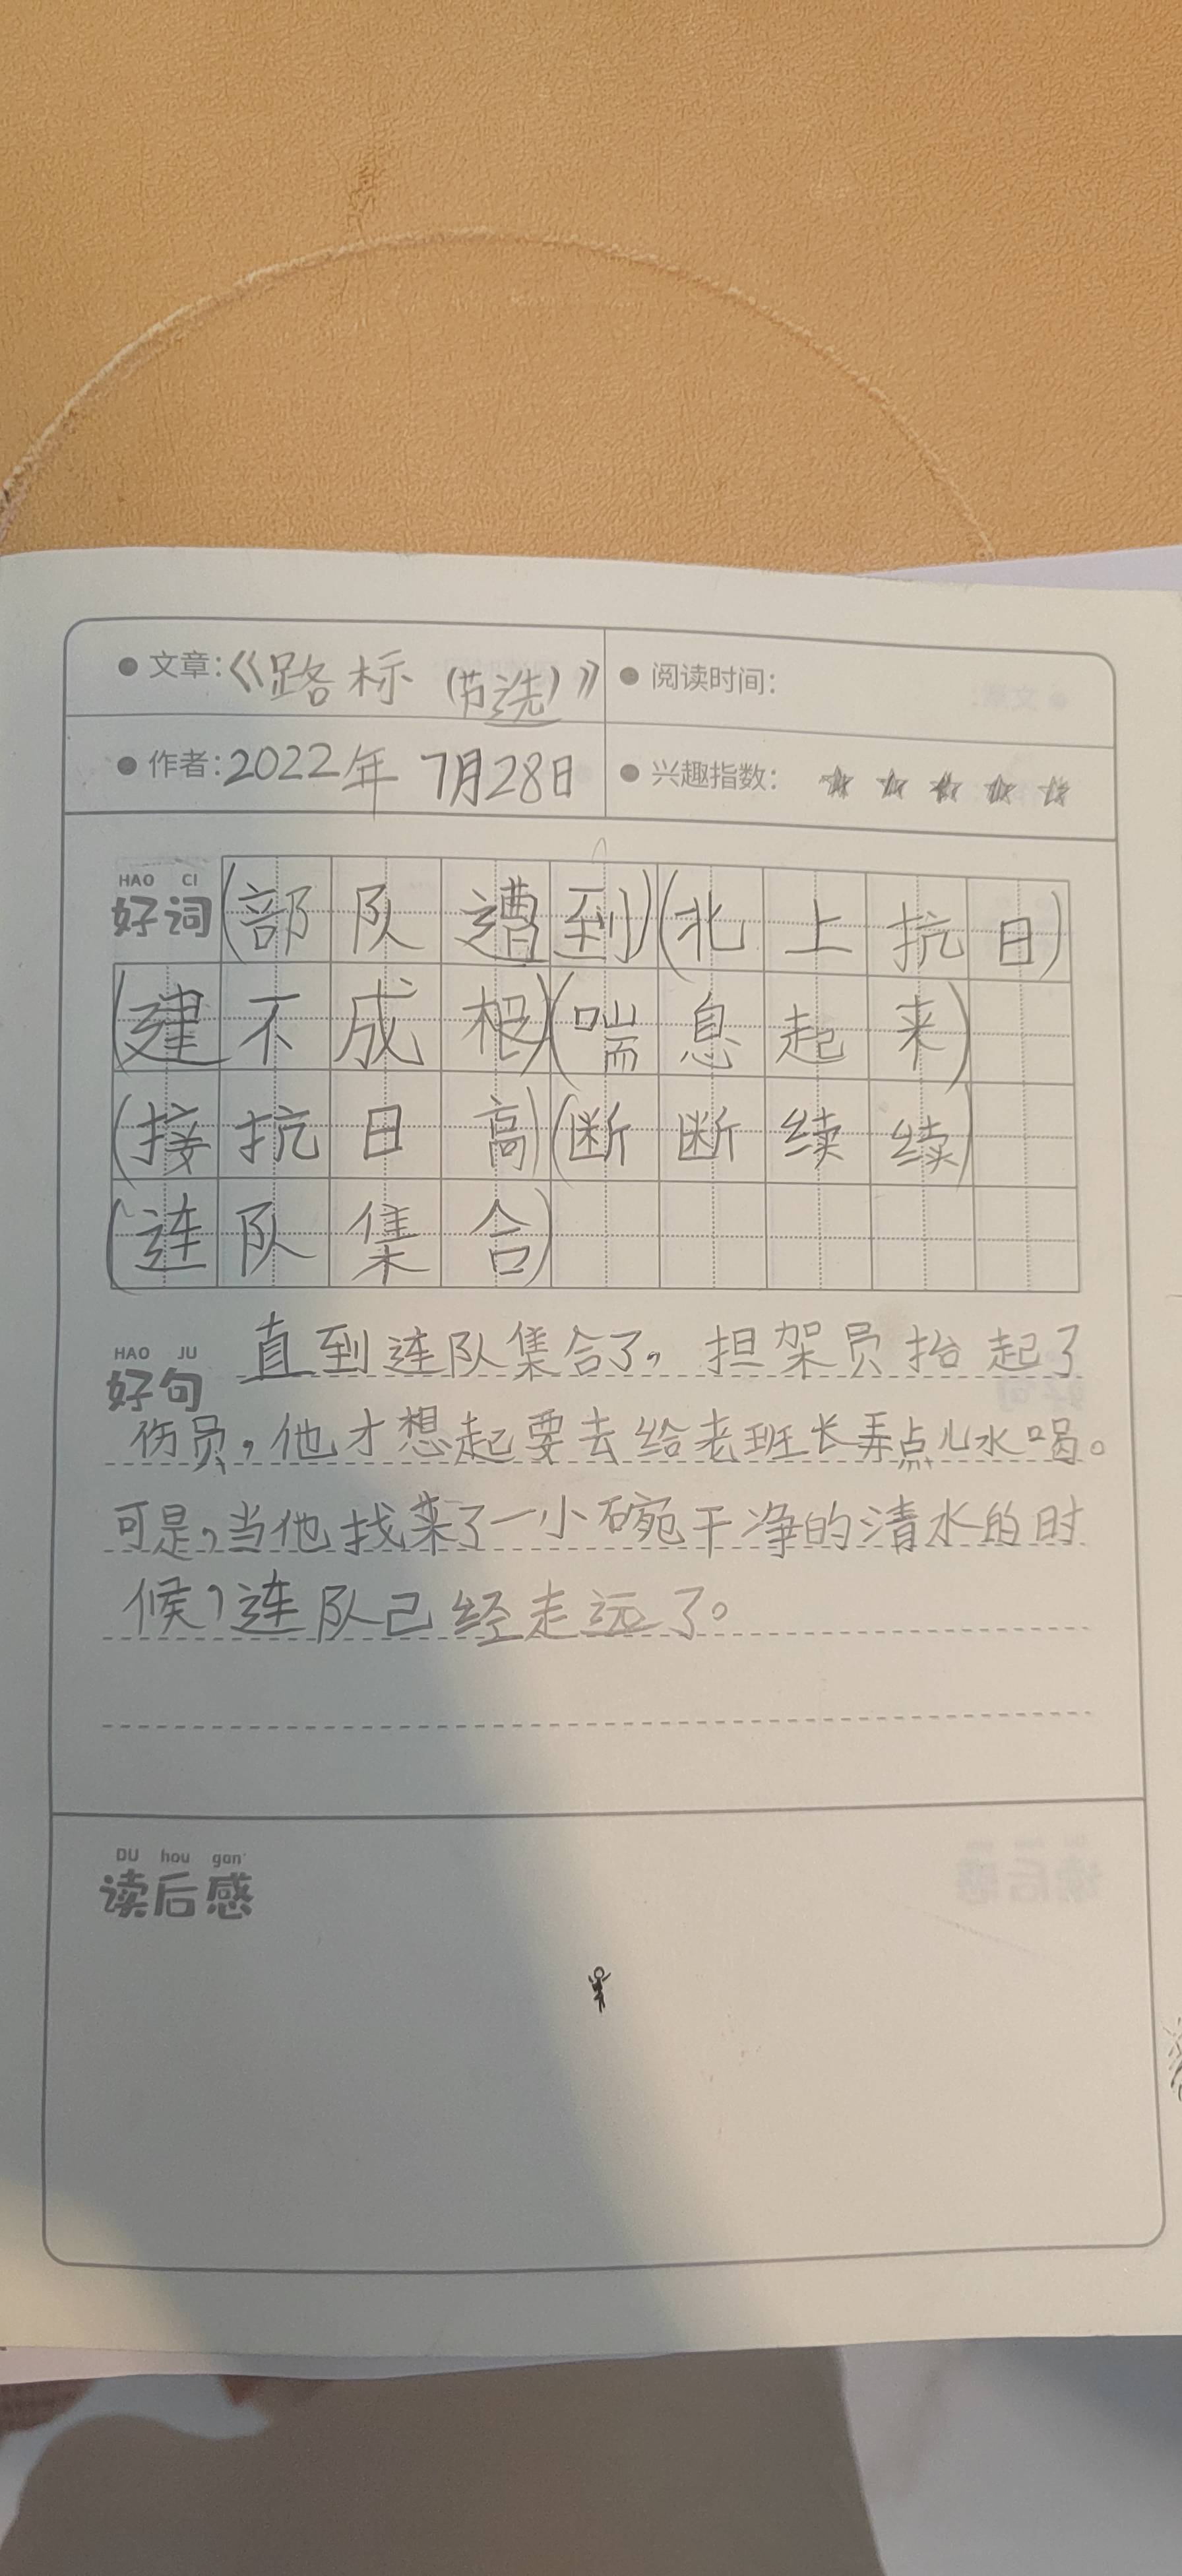 文章:《路标(节选)》
阅读时间:
作者:2022年7月28日
兴趣指数:
HAO CI
好词
(部队遭到)(北上抗日)
(建不成根)(喘息起来)
(接抗日高)(断断续续)
(连队集合)
HAO JU
好句
直到连队集合了,担架员抬起了
伤员,他才想起要去给老班长弄点儿水喝。
可是,当他找来了一小碗干净的清水的时
候,连队己经走远了。
DU hou gan
读后感